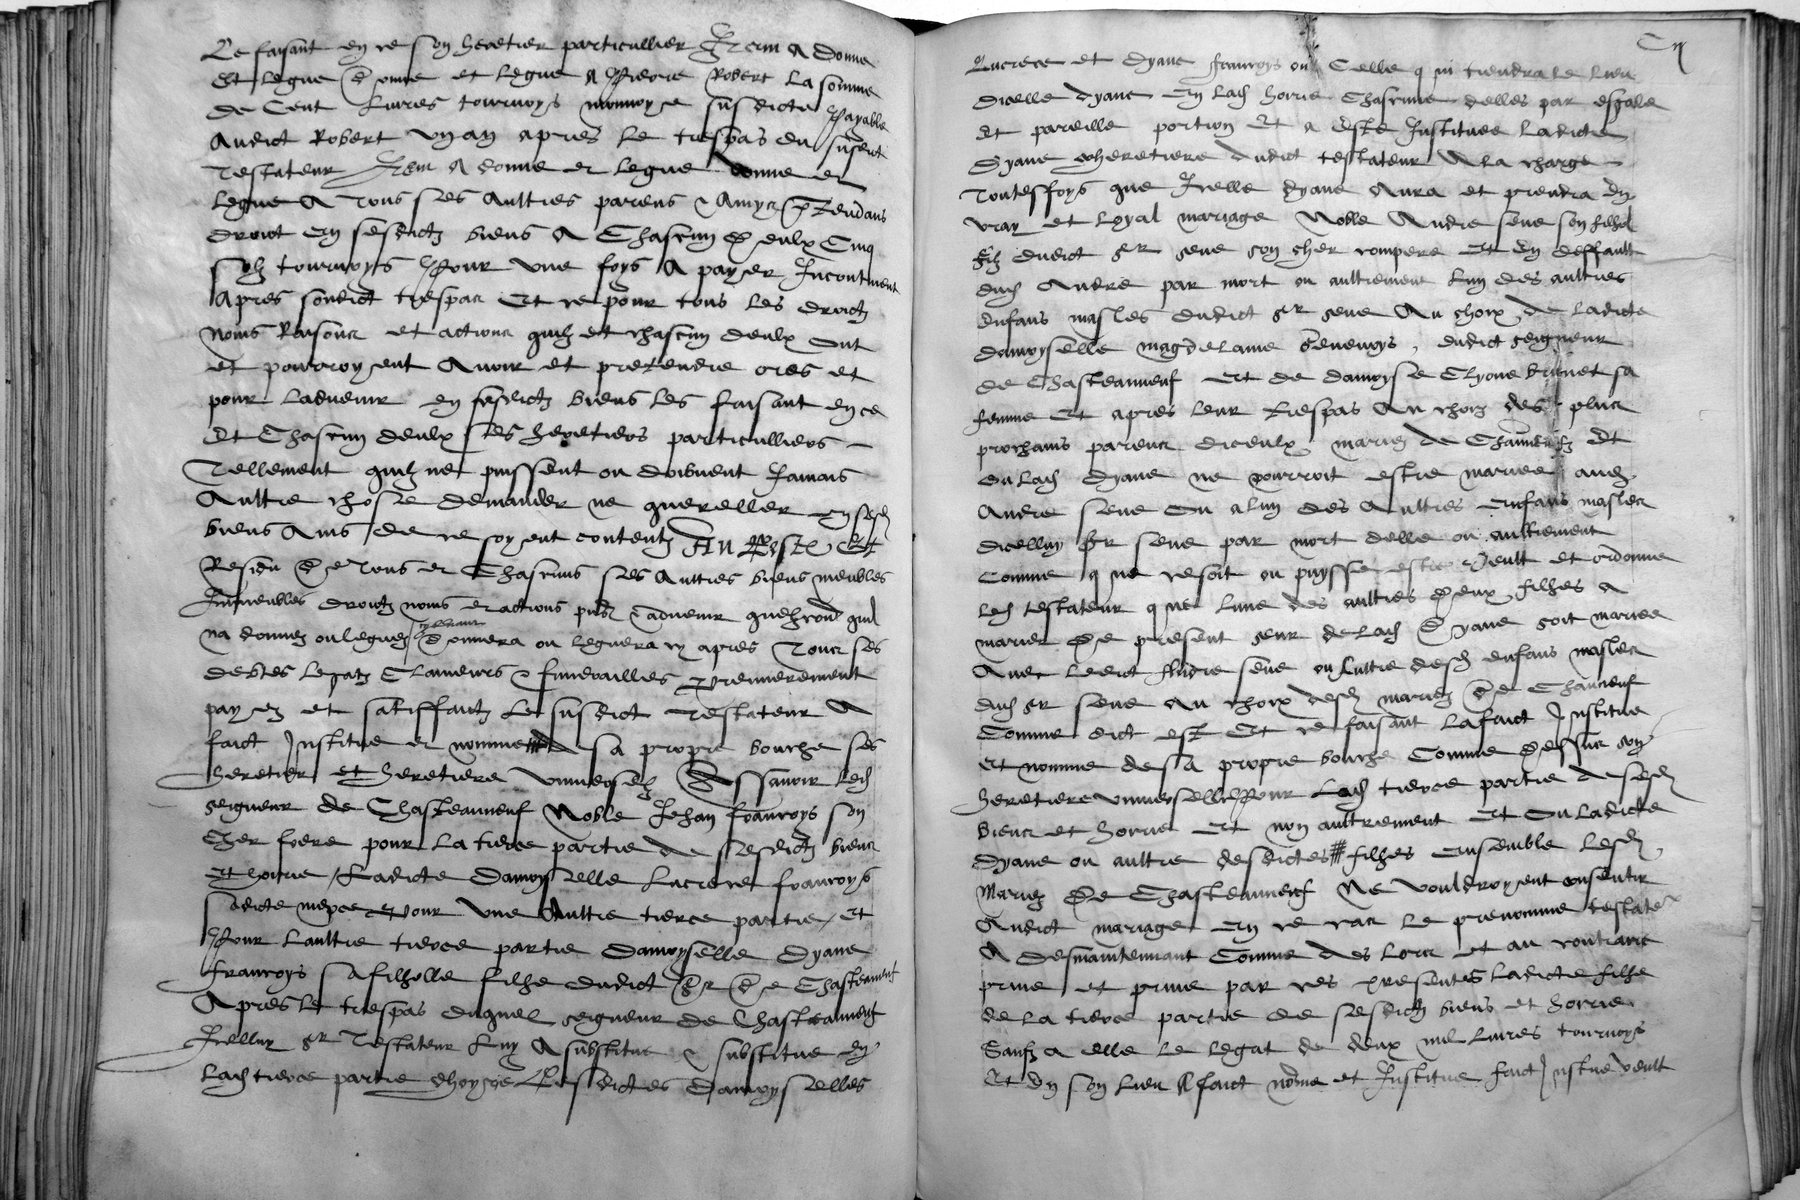 Le faisant en ce son heretier particullier Item a donne
et legue donne et legue a Pierre Robert la somme
de Cent livres tournoys monnoye susdicte payable
audict Robert ung an apres le trespas du susdit
Testateur Item a donne et legue donne et
legue a tous ses aultres parens & amys pretendans
droict en sesdictz biens a Chascun d eulx Cinq
solz tournoys pour une foys a payer Incontinent
apres sondict trespas et ce pour tous les droictz
noms raisons et actions quilz et chascun deulx ont
et pourroyent avoir et pretendre ores et
pour ladvenir en sesdictz biens les faisant en ce
et Chascun deulx ses heretiers particulliers
Tellement quilz ne puissent ou doibvent Jamais
aultre chose demander ne quereller en sesd
biens ains de ce soyent contentz Au Reste et
Residu de tous et Chascuns ses aultres biens meubles
Immeubles droictz noms et actions & advenir quil
na donnez ou leguez donnera ou leguera cy apres Tous ses
debtes legatz Clameurs & funerailles premierement
payez et satisffaictz Le susdict testateur a
faict Institue et nomme de sa propre bouche ses
heretier et heretiere universelz Assavoir led
seigneur de Chasteauneuf Noble Jehan francoys son
cher frere pour la tierce partie de sesdictz biens
et horrie Ladicte damoyselle Lucrece francoys
sadicte niepce pour une aultre tierce partie et
Pour laultre tierce partie damoyselle Dyane
francoys sa filholle filhe dudict sr de Chasteauneuf
Apres le trespas duquel seigneur de Chasteauneuf
Icelluy sr Testateur luy a substitue & substitue en
lad tierce partie dhoyrie Lesdictes damoyselles
Lucrece et Dyane francoys ou Celle qui tiendra le lieu
dicelle dyane en lad horrie Chascune delles par esgale
et pareille portion Et a este Instituee ladicte
Dyane coheretiere dudict testateur a la charge
Toutesfoys que Icelle dyane aura et prendra en
vray et loyal mariage Noble Andre seve son filhol
filz dudict sr seve son cher compere et en deffault
dud Andre par mort ou aultrement lun des aultres
enfans masles dudict sr seve Au choix de ladicte
damoyselle magdelaine dudict seigneur
de Chasteauneuf et de damoyse Clyone brunet sa
femme et apres leur trespas au choix des plus
prochains parens diceulx mariez de Chauneufz Et
ou lad Dyane ne pourroit estre mariee aud
Andre seve ou a lun des aultres enfans masles
dicelluy sr seve par mort delle ou aultrement
Comme que ce soit ou puysse estre veult et ordonne
led testateur que lune des aultres deux filhes a
marier de present seur de lad Dyane soit mariee
avec ledict Andre seve ou laultre desd enfans masles
dud sr seve au choix desd mariez de Chauneuf
Comme dict est Et ce faisant la faict Institue
et nomme de sa propre bouche Comme dessus son
heretiere universelle Pour lad tierce partie de sesd
biens et horrie et non aultrement et Ou ladicte
Dyane ou aultre desdictes filhes ensemble lesd
Mariez de Chasteauneuf Ne vouldroyent consentir
audict mariage en ce cas le prenomme testateur
a desmaintennant Comme des lors et au contraire
prive et prive par ces presentes ladicte filhe
de la tierce partie de sesdictz biens et horrie
Saufz a elle le legat de deux mil livres tournoys
Et en son lieu a faict nomme et Institue faict Institue veult